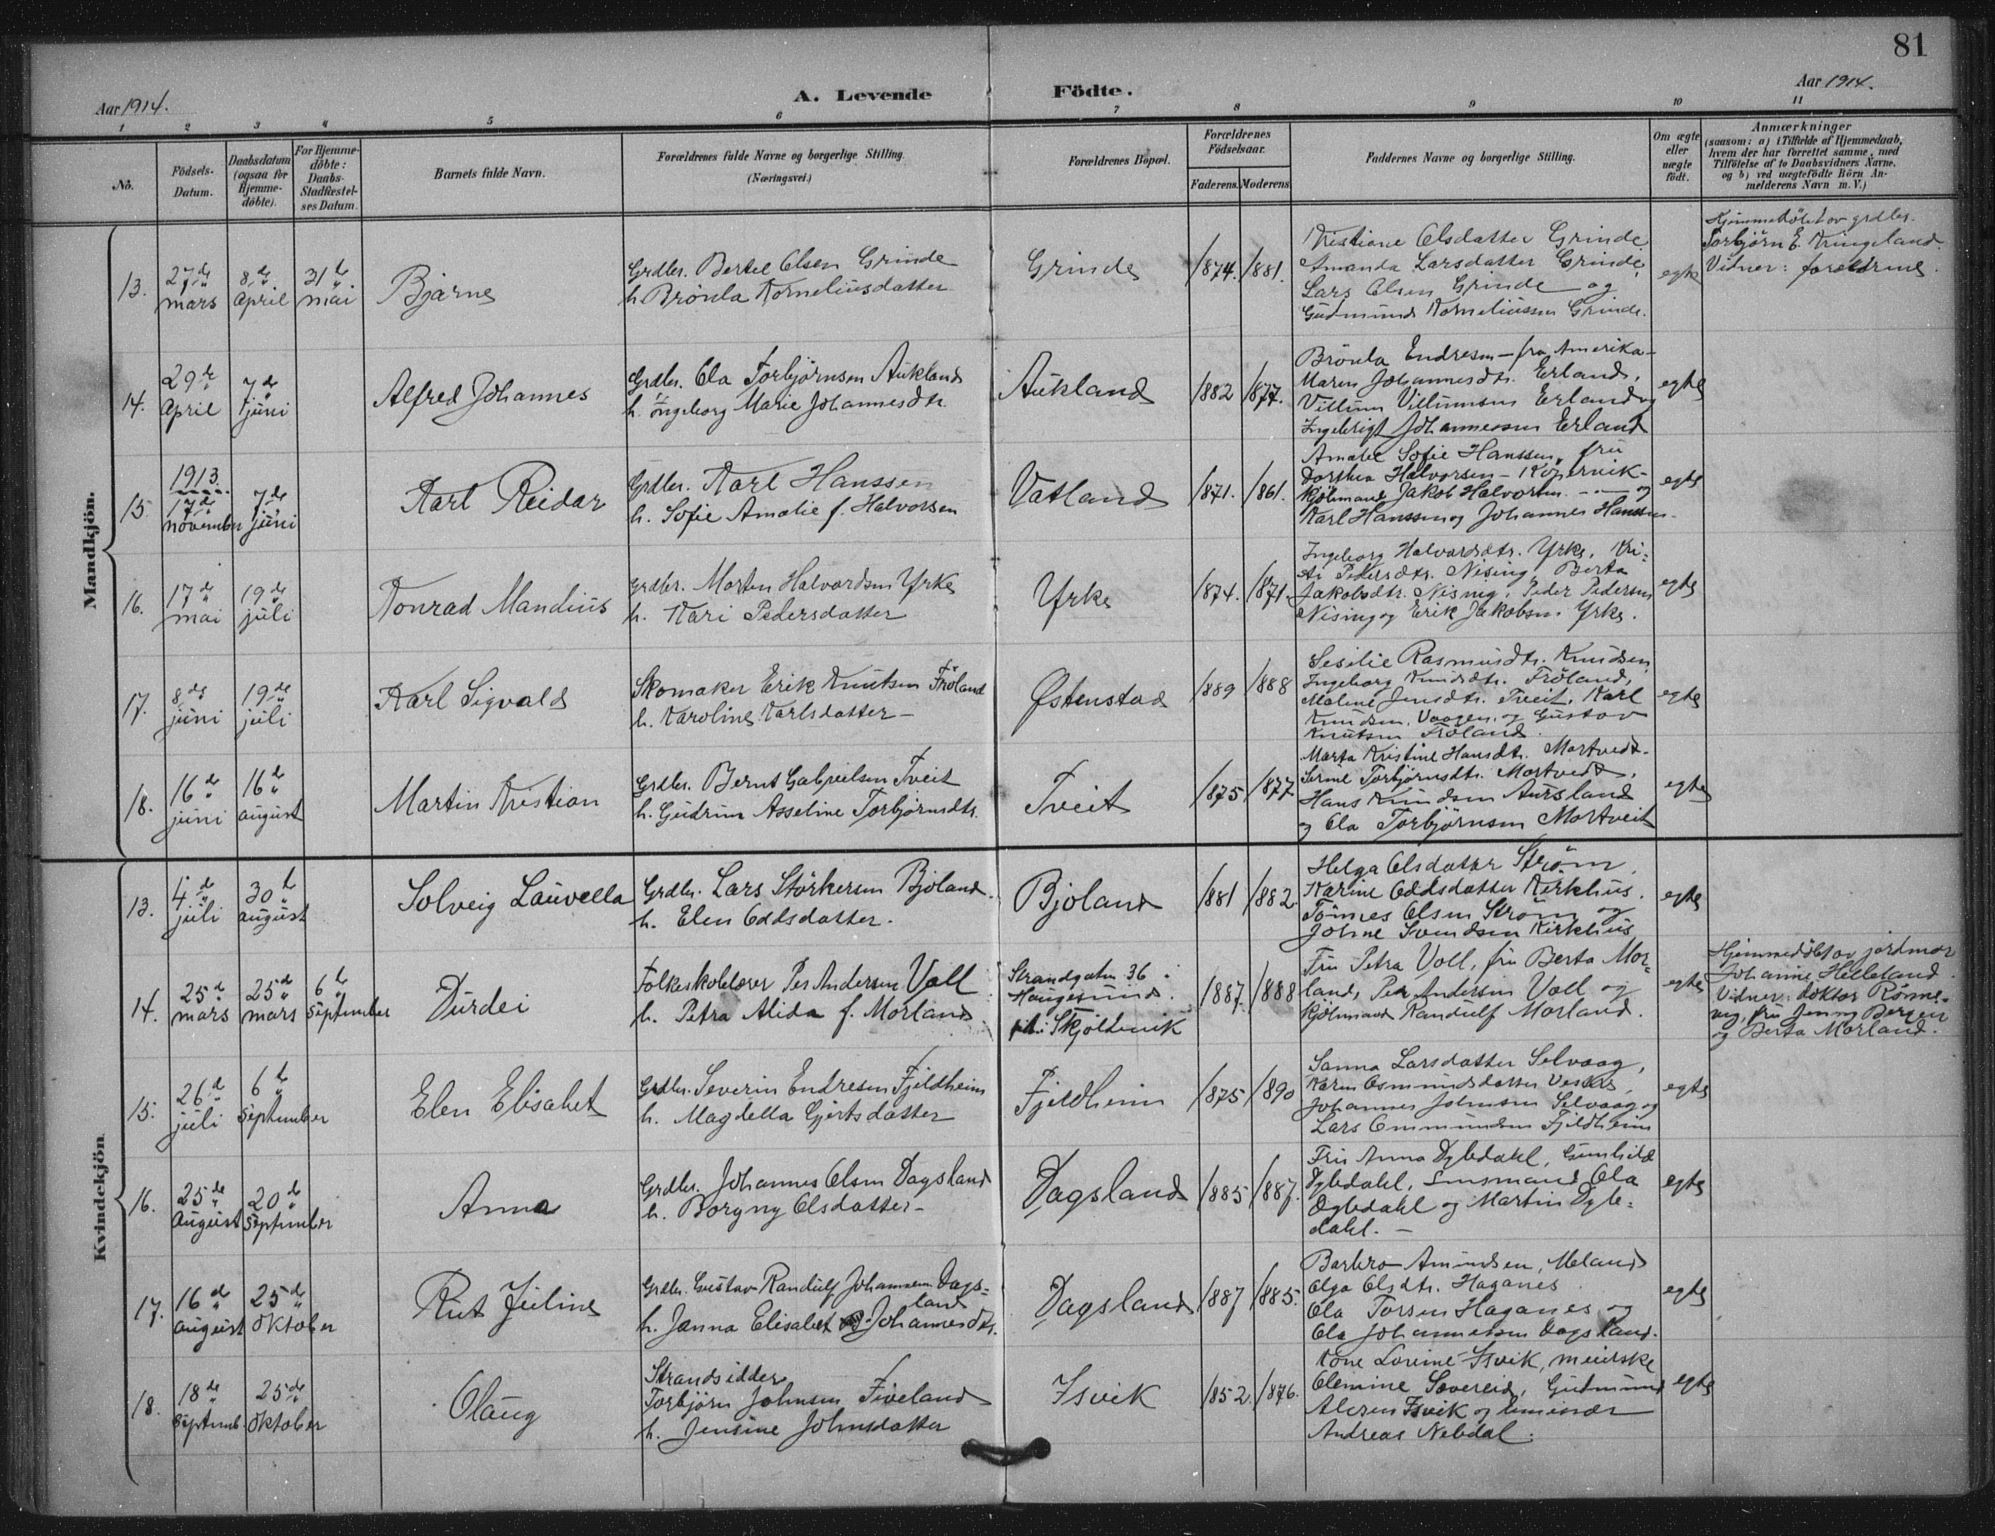 81
Aar 1914.
A. Levende Födte.
Aar 1914.
1 2 3 4 5 6 7 8 9 10 11
No.
Födsels-
Datum.
Daabsdatum
(ogsaa for
Hjemme-
döbte).
For Hjemme-
döbte:
Daabs-
Stadfæstel-
ses Datum.
Barnets fulde Navn.
Forældrenes fulde Navne og borgerlige Stilling.
(Næringsvei.)
Forældrenes Bopæl.
Forældrenes
Födselsaar.
Faderens. Moderens.
Faddernes Navne og borgerlige Stilling.
Om ægte
eller
uægte
födt.
Anmærkninger
(saasom: a) i Tilfælde af Hjemmedaab,
hvem der har forrettet samme, med
Tilföielse af to Daabsvidners Navne,
og b) ved uægtefödte Börn An-
melderens Navn m. V.)
Mandkjön.
13.
27de
mars
8de
april
31te
mai
Bjarne
Grdbr. Bertel Olsen Grinde
h. Brönla Korneliusdatter
Grinde
1874. 1881.
Kristiane Olsdatter Grinde
Amanda Larsdatter Grinde,
Lars Olsen Grinde og
Gudmund Korneliussen Grinde.
egte
Hjemmedöbt av grdbr.
Torbjörn E. Kringeland.
Vidner: foreldrene.
14.
29de
April
7de
juni
Alfred Johannes
Grdbr. Ola Torbjörnsen Aukland
h. Ingeborg Marie Johannesdtr.
Aukland
1882 1877.
Brönla Endresen – fra Amerika –
Maren Johannesdtr. Erland,
Villum Villumsen Erland og
Ingebrigt Johannessen Erland
egte
15.
1913.
17de
november
7de
juni
Karl Reidar
Grdbr. Karl Hanssen
h. Sofie Amalie f. Halvorsen
Vatland
1871. 1861.
Amalie Sofie Hanssen, fru
Dorthea Halvorsen – Kopervik –
kjöbmand Jakob Halvorsen – og
Karl Hanssen og Johannes Hanssen.
egte
16.
17de
mai
19de
juli
Konrad Mandius
Grdbr. Morten Halvardsen Yrke
h. Kari Pedersdatter
Yrke
1874. 1871.
Ingeborg Halvardsdtr. Yrke, Kri-
Pedersdtr. Nising, Berta
Jakobsdtr. Nising, Peder Pedersen
Nising og Erik Jakobsen Yrke.
egte
17.
8de
juni
19de
juli
Karl Sigvald
Skomaker Erik Knutsen Fröland
h. Karoline Karlsdatter –
Østenstad
1889 1888
Sesilie Rasmusdtr. Knudsen,
Ingeborg Knudsdtr. Fröland,
Malene Jensdtr. Tveit, Karl
Knudsen, Vaagen, og Gustav
Knutsen Fröland.
egte
18.
16de
juni
16de
august
Martin Kristian
Grdbr. Bernt Gabrielsen Tveit
h. Gudrun Asseline Torbjörnsdtr.
Tveit
1875 1877
Marta Kristine Hansdtr. Mortvedt.
Serine Torbjörnsdtr. Mortvedt,
Hans Knudsen Aursland
og Ola Torbjörnsen Mortveit
egte
Kvindekjön
13.
4de
juli
30te
august
Solveig Lauvella
Grdbr. Lars Störkersen Bjoland.
h. Elen Oddsdatter.
Bjoland
1881 1882.
Helga Olsdatter Ström,
Karine Oddsdatter Kirkhus.
Tönnes Olsen Ström og
Johne Svendsen Kirkhus
egte
14.
25de
mars
25de
mars
6te
september
Durdei
Folkeskolelærer Per Andersen Voll
h. Petra Alida f. Morland
Strandgaten 36 –
Haugesund.
Skjoldevik
1887 1888
Fru Petra Voll, fru Berta Mor-
land, Per Andersen Voll og
kjöbmand Randulf Morland.
egte
Hjemmedöbt av jordmor
Johanne Helleland.
Vidner: doktor Rönne-
vig, fru Jenny Bergen
og Berta Morland.
15.
26de
juli
6te
september
Elen Elisabet
Grdbr. Severin Endresen Fjeldheim
h. Magdella Gjertsdatter
Fjeldheim
1875 1890
Sanna Larsdatter Selvaag,
Karen Osmundsdatter Vestre,
Johannes Johnsen Selvaag og
Lars Ommundsen Fjeldheim
egte
16.
25de
august
20de
september
Anna
Grdbr. Johannes Olsen Dagsland
h. Borgny Olsdatter –
Dagsland
1885 1887.
Fru Anna Dybdahl, Gunhild
Dybdahl, Lensmand Ola
Dybdahl og Martin Dyb-
dahl. –
egte
17.
16de
august
25de
oktober
Rut Juline
Grdbr. Gustav Randulf Johannesen Dags-
land
h. Janna Elisabet Johannesdtr.
Dagsland
1887 1885.
Barbro Amundsen, Meland
Olga Olsdtr. Haganes
Ola Torsen Haganes og
Ola Johannesen Dagsland.
egte
18.
18de
septemb.
25de
oktober
Olaug
Strandsidder
Torbjörn Johnsen Fiveland
h. Jensine Johnsdatter
Isvik
1852. 1876.
Kone Lovine Isvik, meierske
Olemine Sævereid, Gudmund
Alersen Isvik og
Andreas Nebdal.
egte